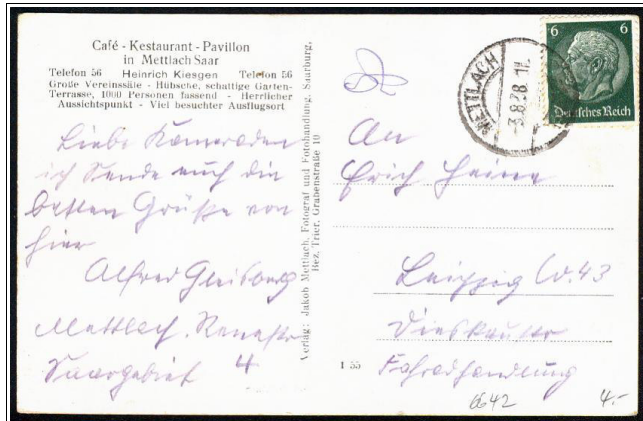 Café - Restaurant - Pavillon
in Mettlach Saar
Telefon 56 Heinrich Kiesgen Telefon 56
Große Vereinssäle - Hübsche, schattige Garten-
Terrasse, 1000 Personen fassend - Herrlicher
Aussichtspunkt - Viel besuchter Ausflugsort
Liebe Kameraden
ich Sende euch die
besten Grüße von
hier
Alfred
Mettlach
Saargebiet 4
Verlag: Jakob Mettlach, Fotograf und Fotohandlung, Saarburg,
Bez. Trier, Grabenstraße 10
METTLACH
6 6
Deutsches Reich
An
Erich Heine
Leipzig W.43
Fahrradhandlung
I 55
6642
4.-